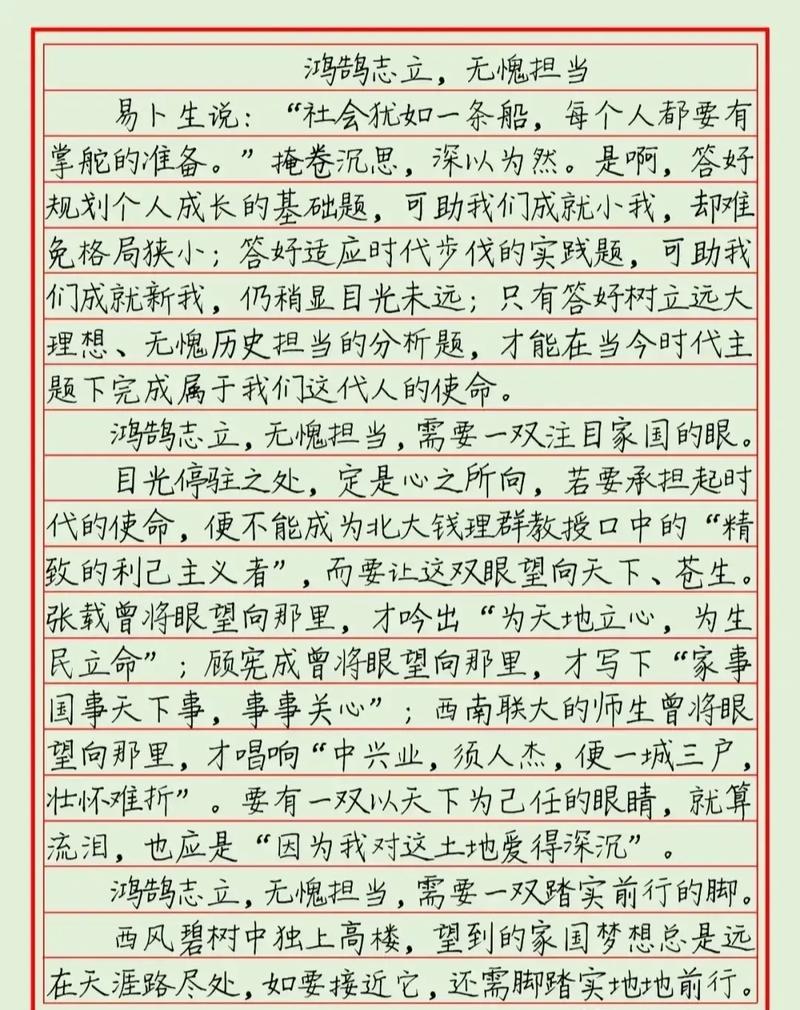 鸿鹄志立，无愧担当
易卜生说：“社会犹如一条船，每个人都要有
掌舵的准备。”掩卷沉思，深以为然。是啊，答好
规划个人成长的基础题，可助我们成就小我，却难
免格局狭小；答好适应时代步伐的实践题，可助我
们成就新我，仍稍显目光未远；只有答好树立远大
理想、无愧历史担当的分析题，才能在当今时代主
题下完成属于我们这代人的使命。
鸿鹄志立，无愧担当，需要一双注目家国的眼。
目光停驻之处，定是心之所向，若要承担起时
代的使命，便不能成为北大钱理群教授口中的“精
致的利己主义者”，而要让这双眼望向天下、苍生。
张载曾将眼望向那里，才吟出“为天地立心，为生
民立命”；顾宪成曾将眼望向那里，才写下“家事
国事天下事，事事关心”；西南联大的师生曾将眼
望向那里，才唱响“中兴业，须人杰，便一城三户，
壮怀难折”。要有一双以天下为己任的眼睛，就算
流泪，也应是“因为我对这土地爱得深沉”。
鸿鹄志立，无愧担当，需要一双踏实前行的脚。
西风碧树中独上高楼，望到的家国梦想总是远
在天涯路尽处，如要接近它，还需脚踏实地地前行。